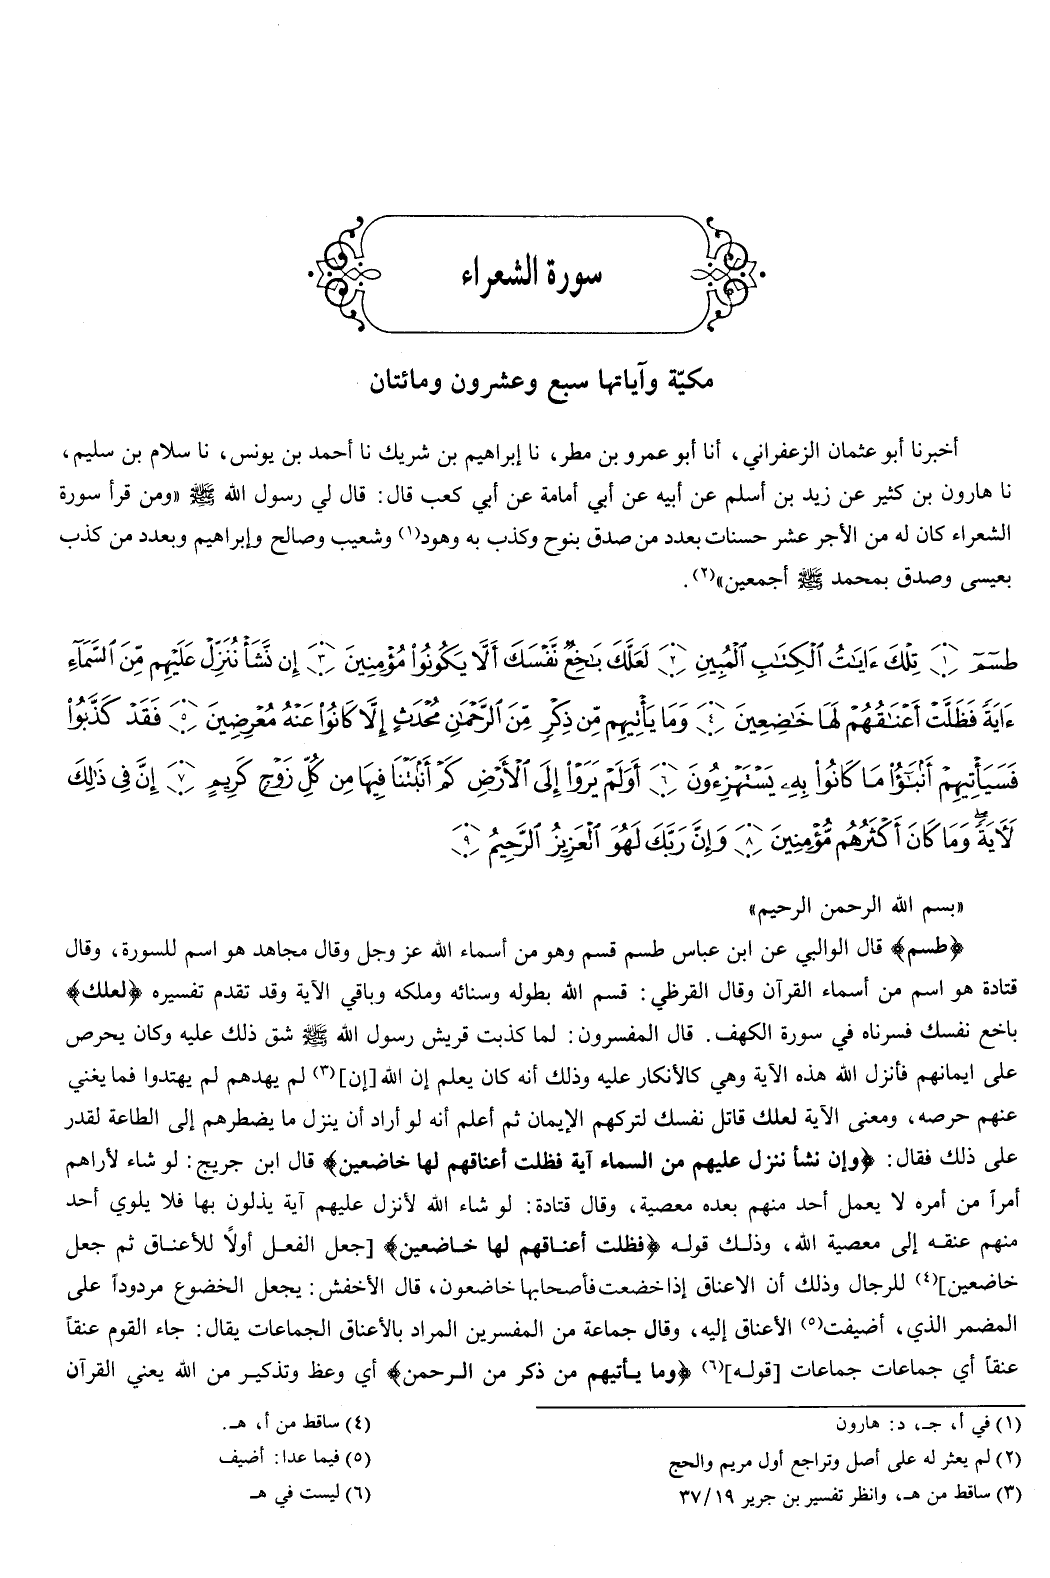 سورة الشعراء
مكيّة وآياتها سبع وعشرون ومائتان
أخبرنا أبو عثمان الزعفراني، أنا أبو عمرو بن مطر، نا إبراهيم بن شريك نا أحمد بن يونس، نا سلام بن سليم،
نا هارون بن كثير عن زيد بن أسلم عن أبيه عن أبي أمامة عن أبي كعب قال: قال لي رسول الله ﷺ «ومن قرأ سورة
الشعراء كان له من الأجر عشر حسنات بعدد من صدق بنوح وكذب به وهود(١) وشعيب وصالح وإبراهيم وبعدد من كذب
بعيسى وصدق بمحمد ﷺ أجمعين»(٢).
طسٓمٓ ١ تِلۡكَ ءَايَٰتُ ٱلۡكِتَٰبِ ٱلۡمُبِينِ ٢ لَعَلَّكَ بَٰخِعٞ نَّفۡسَكَ أَلَّا يَكُونُواْ مُؤۡمِنِينَ ٣ إِن نَّشَأۡ نُنَزِّلۡ عَلَيۡهِم مِّنَ ٱلسَّمَآءِ
ءَايَةٗ فَظَلَّتۡ أَعۡنَٰقُهُمۡ لَهَا خَٰضِعِينَ ٤ وَمَا يَأۡتِيهِم مِّن ذِكۡرٖ مِّنَ ٱلرَّحۡمَٰنِ مُحۡدَثٍ إِلَّا كَانُواْ عَنۡهُ مُعۡرِضِينَ ٥ فَقَدۡ كَذَّبُواْ
فَسَيَأۡتِيهِمۡ أَنۢبَٰٓؤُاْ مَا كَانُواْ بِهِۦ يَسۡتَهۡزِءُونَ ٦ أَوَلَمۡ يَرَوۡاْ إِلَى ٱلۡأَرۡضِ كَمۡ أَنۢبَتۡنَا فِيهَا مِن كُلِّ زَوۡجٖ كَرِيمٍ ٧ إِنَّ فِي ذَٰلِكَ
لَأٓيَةٗۖ وَمَا كَانَ أَكۡثَرُهُم مُّؤۡمِنِينَ ٨ وَإِنَّ رَبَّكَ لَهُوَ ٱلۡعَزِيزُ ٱلرَّحِيمُ ٩
«بسم الله الرحمن الرحيم»
﴿طسم﴾ قال الوالبي عن ابن عباس طسم قسم وهو من أسماء الله عز وجل وقال مجاهد هو اسم للسورة، وقال
قتادة هو اسم من أسماء القرآن وقال القرظي: قسم الله بطوله وسنائه وملكه وباقي الآية وقد تقدم تفسيره ﴿لعلك﴾
باخع نفسك فسرناه في سورة الكهف. قال المفسرون: لما كذبت قريش رسول الله ﷺ شق ذلك عليه وكان يحرص
على ايمانهم فأنزل الله هذه الآية وهي كالأنكار عليه وذلك أنه كان يعلم إن الله [إن](٣) لم يهدهم لم يهتدوا فما يغني
عنهم حرصه، ومعنى الآية لعلك قاتل نفسك لتركهم الإيمان ثم أعلم أنه لو أراد أن ينزل ما يضطرهم إلى الطاعة لقدر
على ذلك فقال: ﴿وإن نشأ ننزل عليهم من السماء آية فظلت أعناقهم لها خاضعين﴾ قال ابن جريج: لو شاء لأراهم
أمراً من أمره لا يعمل أحد منهم بعده معصية، وقال قتادة: لو شاء الله لأنزل عليهم آية يذلون بها فلا يلوي أحد
منهم عنقه إلى معصية الله، وذلك قوله ﴿فظلت أعناقهم لها خاضعين﴾ [جعل الفعل أولاً للأعناق ثم جعل
خاضعين](٤) للرجال وذلك أن الاعناق إذا خضعت فأصحابها خاضعون، قال الأخفش: يجعل الخضوع مردوداً على
المضمر الذي، أضيفت(٥) الأعناق إليه، وقال جماعة من المفسرين المراد بالأعناق الجماعات يقال: جاء القوم عنقاً
عنقاً أي جماعات جماعات [قوله](٦) ﴿وما يأتيهم من ذكر من الرحمن﴾ أي وعظ وتذكير من الله يعني القرآن
(١) في أ، جـ، د: هارون
(٢) لم يعثر له على أصل وتراجع أول مريم والحج
(٣) ساقط من هـ، وانظر تفسير بن جرير ٣٧/١٩
(٤) ساقط من أ، هـ.
(٥) فيما عدا: أضيف
(٦) ليست في هـ